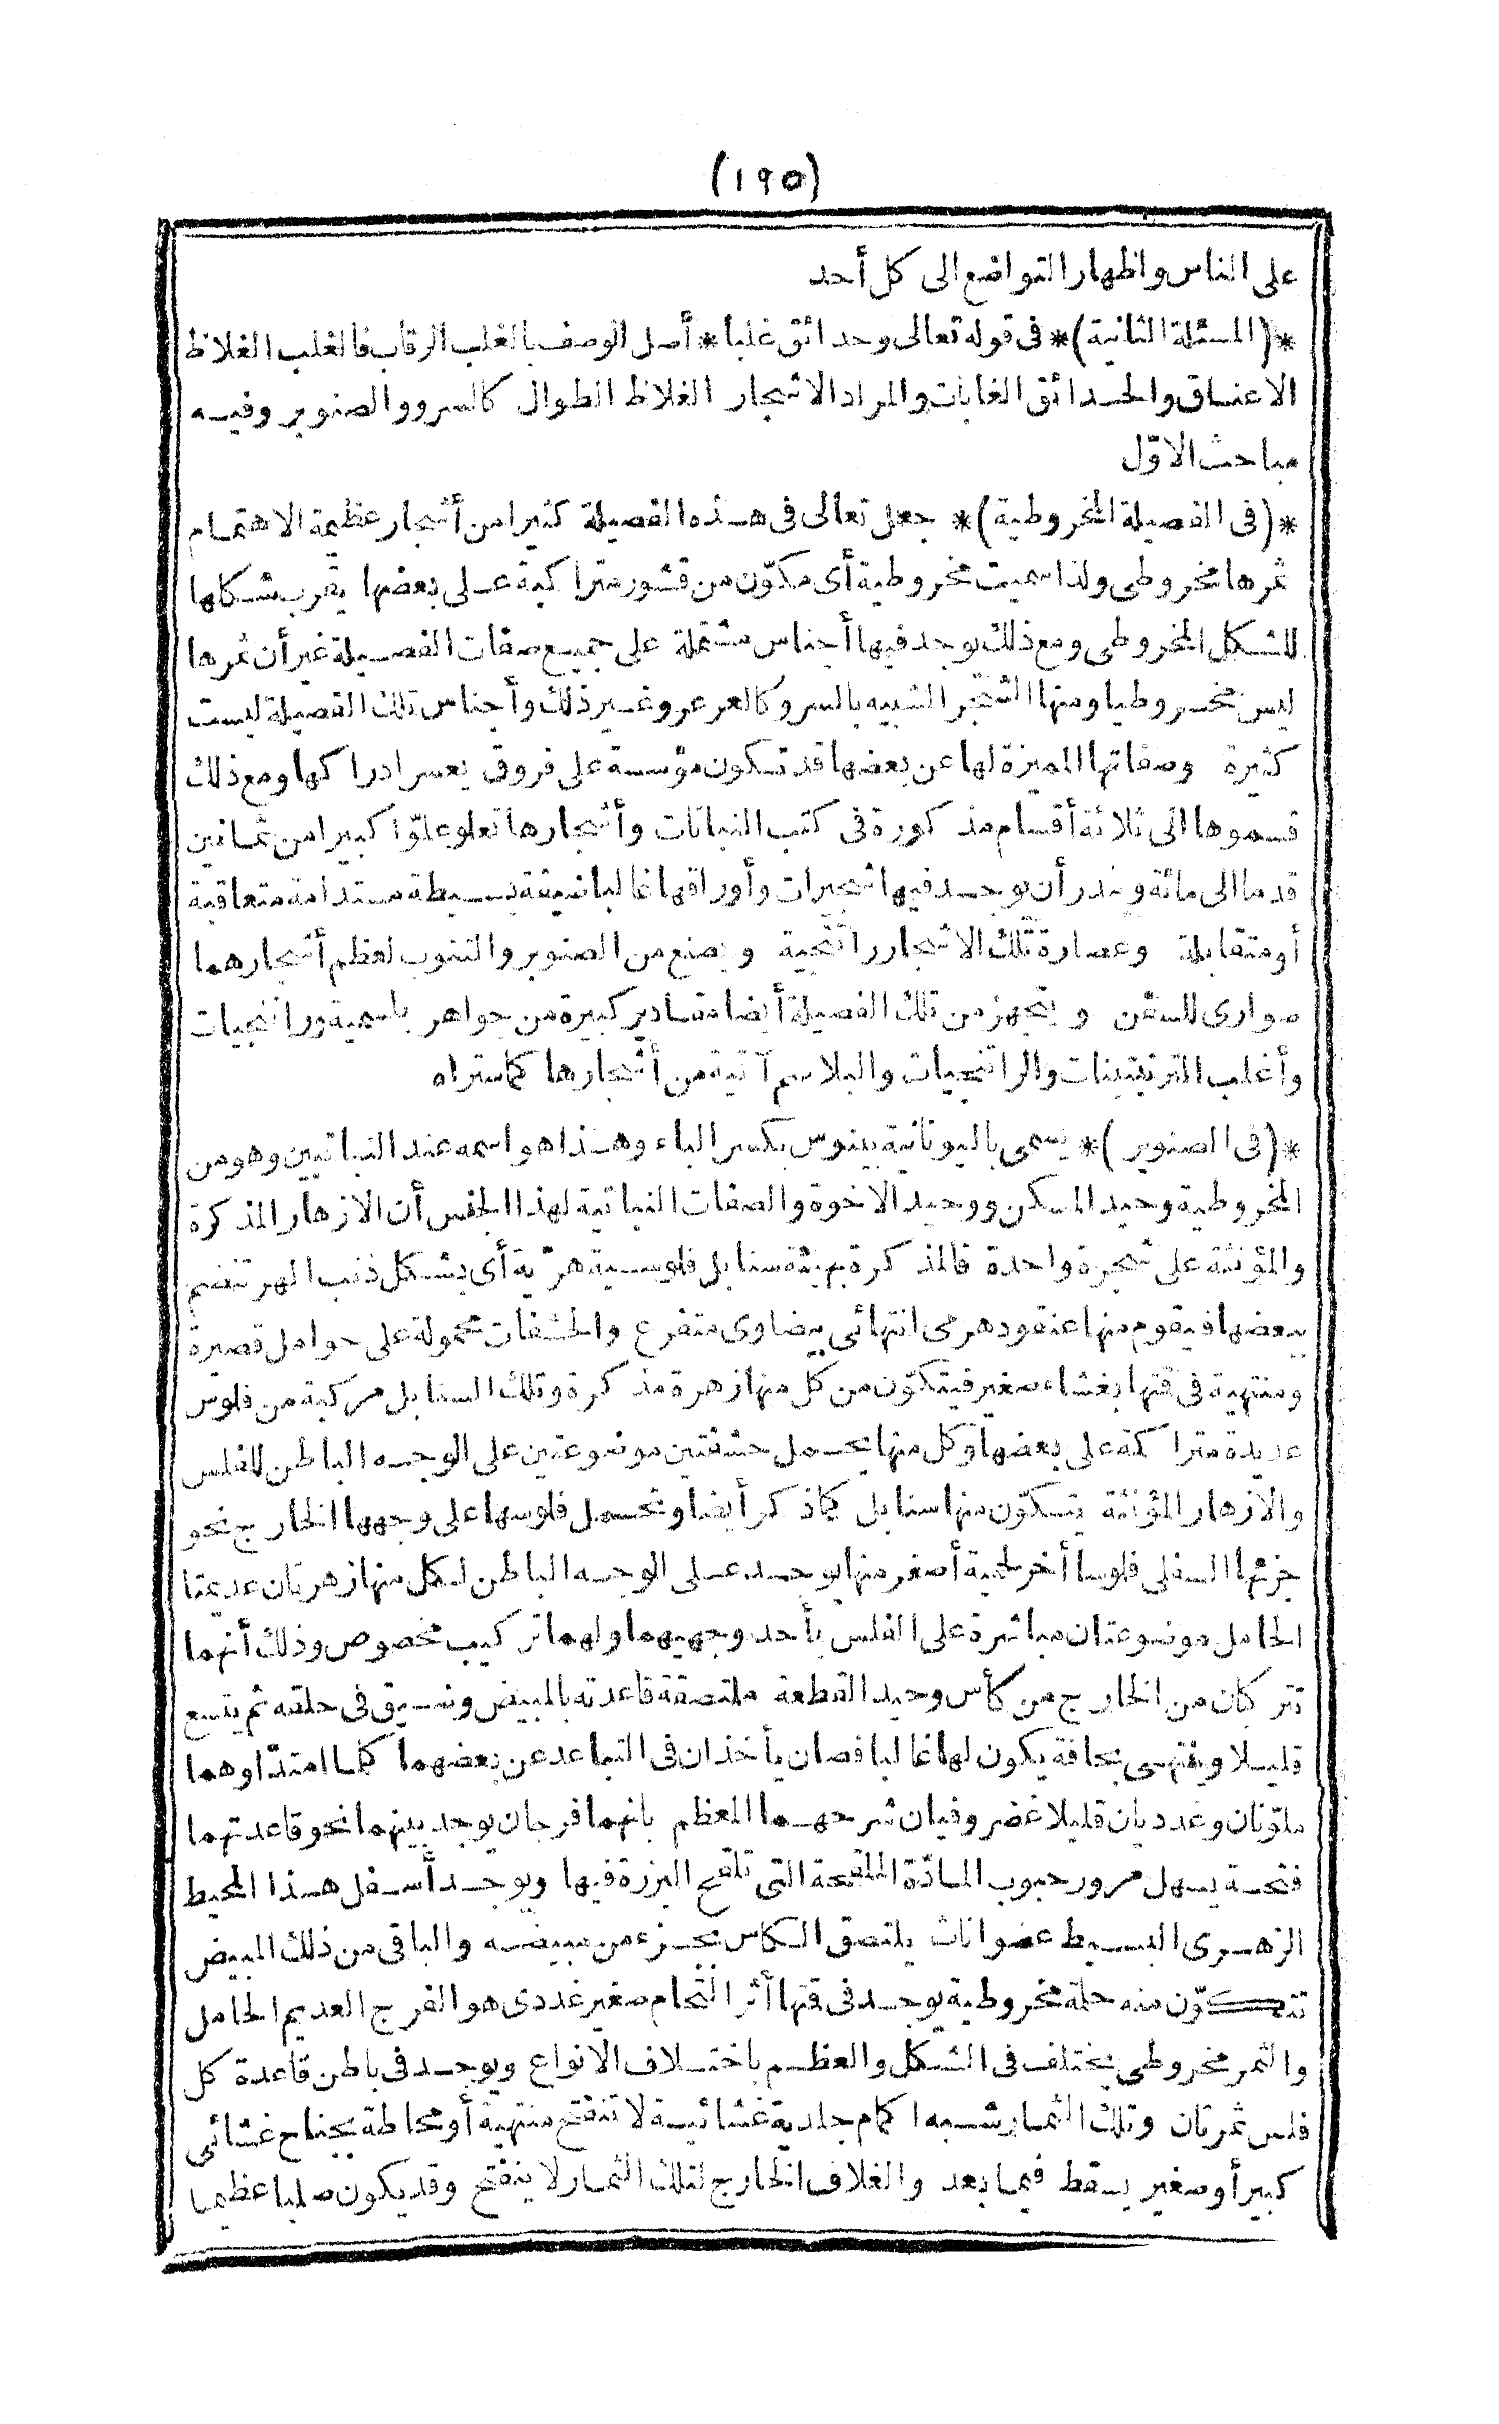 (١٩٥)
على الناس واظهار التواضع الى كل أحد
*(المسئلة الثانية)* فى قوله تعالى وحدائق غلبا * أصل الوصف بالغلب الرقاب فالغلب الغلاظ
الاعناق والحدائق الغابات والمراد الاشجار الغلاظ الطوال كالسرو والصنوبر وفيه
مباحث الاوّل
*(فى الفصيلة المخروطية)* جعل تعالى فى هذه الفصيلة كثيرا من أشجار عظيمة الاهتمام
ثمرها مخروطى ولذا سميت مخروطية أى مكوّن من قشور متراكبة على بعضها يقرب شكلها
للشكل المخروطى ومع ذلك يوجد فيها أجناس مشتملة على جميع صفات الفصيلة غير أن ثمرها
ليس مخروطيا ومنها الشجر الشبيه بالسرو كالعرعر وغير ذلك وأجناس تلك الفصيلة ليست
كثيرة وصفاتها المميزة لها عن بعضها قد تكون مؤسسة على فروق يعسر ادراكها ومع ذلك
قسموها الى ثلاثة أقسام مذكورة فى كتب النباتات وأشجارها تعلو علوّا كبيرا من ثمانين
قدما الى مائة ويندر أن يوجد فيها شجيرات وأوراقها غالبا ضيقة بسيطة مستدامة متعاقبة
أو متقابلة وعصارة تلك الاشجار راتنجية ويصنع من الصنوبر والتنوب لعظم أشجارهما
صوارى للسفن ويتجهز من تلك الفصيلة أيضا مقادير كبيرة من جواهر بلسمية وراتنجيات
وأغلب الترنتينات والراتنجيات والبلاسم آتية من أشجارها كما ستراه
*(فى الصنوبر)* يسمى باليونانية بينوس بكسر الباء وهذا هو اسمه عند النباتيين وهو من
المخروطية وحيد المسكن ووحيد الاخوة والصفات النباتية لهذا الجنس أن الازهار المذكرة
والمؤنثة على شجرة واحدة فالمذكرة بهيئة سنابل فلوسية هرّية أى بشكل ذنب الهر تنضم
ببعضها فيقوم منها عنقود هرمى انتهائى بيضاوى متفرع والحشفات محمولة على حوامل قصيرة
ومنتهية فى قمتها بغشاء صغير فيتكوّن من كل منها زهرة مذكرة وتلك السنابل مركبة من فلوس
عديدة متراكمة على بعضها وكل منها يحمل حشفتين موضوعتين على الوجه الباطن للفلس
والازهار المؤنثة يتكوّن منها سنابل كما ذكر أيضا وتحمل فلوسها على وجهها الخارج نحو
جزئها السفلى فلوسا أخر لحمية أصغر منها يوجد على الوجه الباطن لكل منها زهرتان عديمتا
الحامل موضوعتان مباشرة على الفلس بأحد وجهيهما ولهما تركيب مخصوص وذلك أنهما
تتركبان من الخارج من كأس وحيد القطعة ملتصقة قاعدته بالمبيض وضيق فى حلقه ثم يتسع
قليلا وينتهى بحافة يكون لها غالبا فصان يأخذان فى التباعد عن بعضهما كلما امتدّا وهما
ملوّنان وغدديان قليلا غضروفيان شرحهما المعظم بانهما فرجان يوجد بينهما نحو قاعدتهما
فتحة يسهل مرور حبوب المادّة الملقحة التى تلقح البزرة فيها ويوجد أسفل هذا المحيط
الزهرى البسيط عضو اناث يلتصق الكاس بجزء من مبيضه والباقى من ذلك المبيض
تتكوّن منه حلمة مخروطية يوجد فى قمتها أثر التحام صغير غددى هو الفرج العديم الحامل
والثمر مخروطى يختلف فى الشكل والعظم باختلاف الانواع ويوجد فى باطن قاعدة كل
فلس ثمرتان وتلك الثمار شبه اكمام جلدية غشائية لا تنفتح منتهية أو محاطة بجناح غشائى
كبير أو صغير يسقط فيما بعد والغلاف الخارج لتلك الثمار لا ينفتح وقد يكون صلبا عظميا